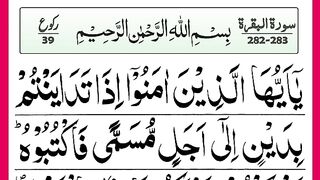 سورة البقرة
282-283
بِسْمِ اللهِ الرَّحْمٰنِ الرَّحِيْمِ
رکوع
39
يٰۤاَيُّهَا الَّذِيْنَ اٰمَنُوْۤا اِذَا تَدَايَنْتُمْ
بِدَيْنٍ اِلٰۤى اَجَلٍ مُّسَمًّى فَاكْتُبُوْهُ ؕ